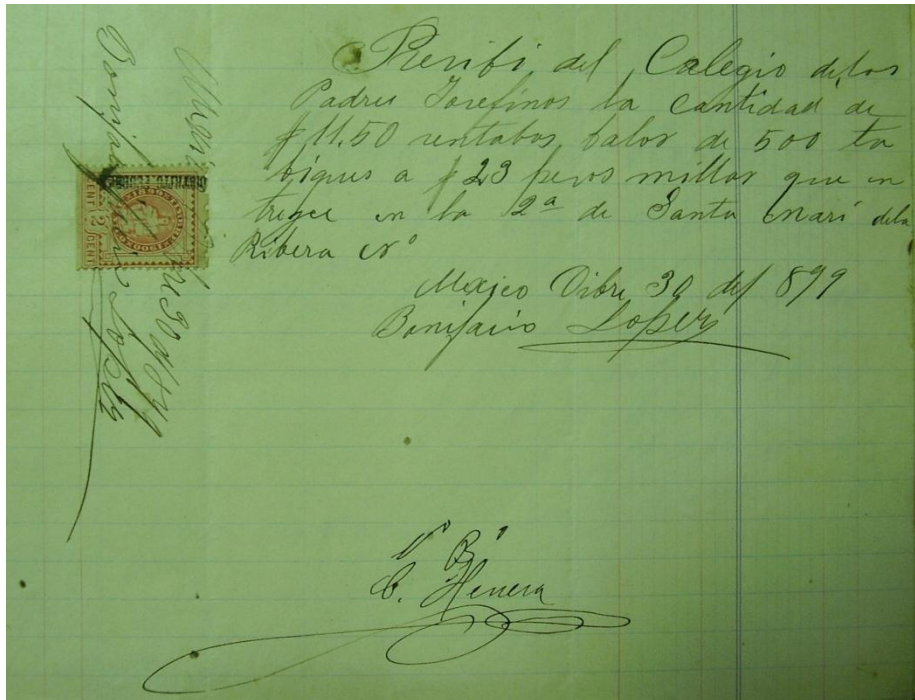 Resibi del Calegio delos
Padres Josefinos la Cantidad de
$ 11.50 sentabos balor de 500 ta
biques a $ 23 pesos millar que en
tregee en la 2ª de Santa Mari dela
Ribera Nº
Mexico Dibre 30 del 899
Bonifacio Lopez
Vº Bº
C. Herrera
Bonifacio Lopez
CENT. 2 CENT.